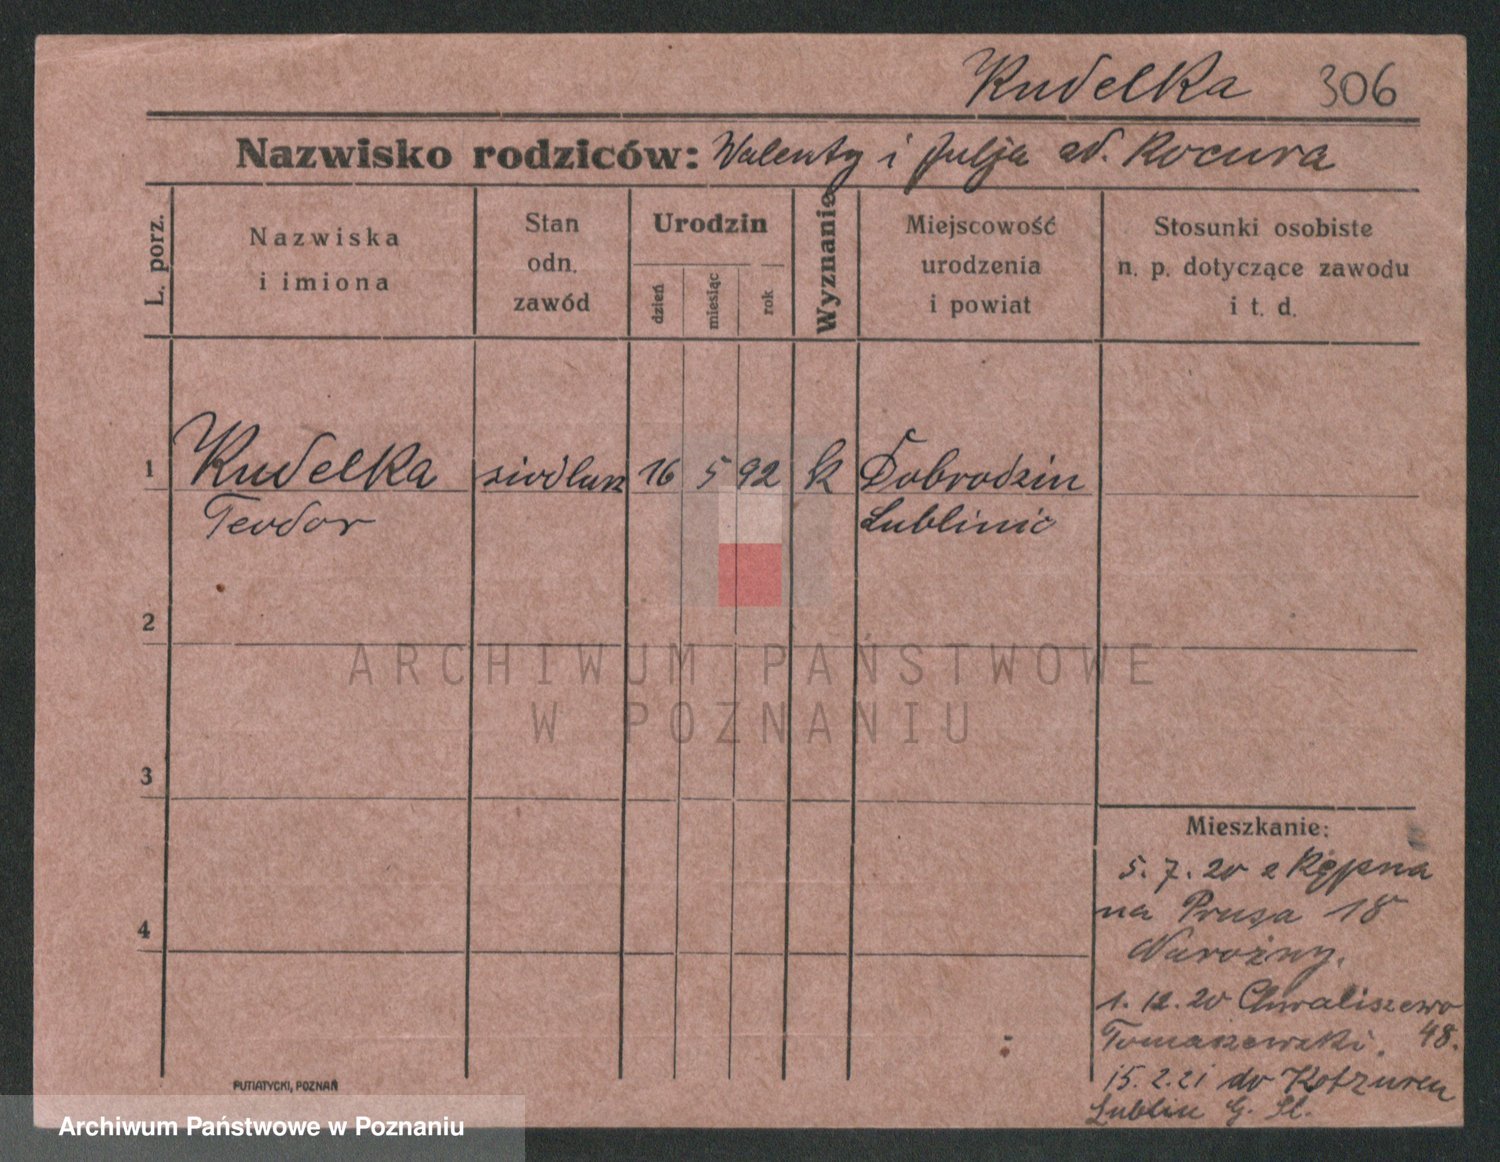 Kudelka 306
Nazwisko rodziców: Walenty i Julja od. Kocura
L. porz.
Nazwiska
i imiona
Stan
odn.
zawód
Urodzin
dzień
miesiąc
rok
Wyznanie
Miejscowość
urodzenia
i powiat
Stosunki osobiste
n. p. dotyczące zawodu
i t. d.
1 Kudelka siodlarz 16 5 92 k Dobrodzin
Teodor Lublinic
2
3
4
Mieszkanie:
5. 7. 20 z Kępna
na Prusa 18
Narożny.
1. 12. 20 Chwaliszewo
Tomaszewski. 48.
15. 2. 21 do
Lublin G. Sl.
PUTIATYCKI, POZNAŃ
ARCHIWUM PAŃSTWOWE
W POZNANIU
Archiwum Państwowe w Poznaniu